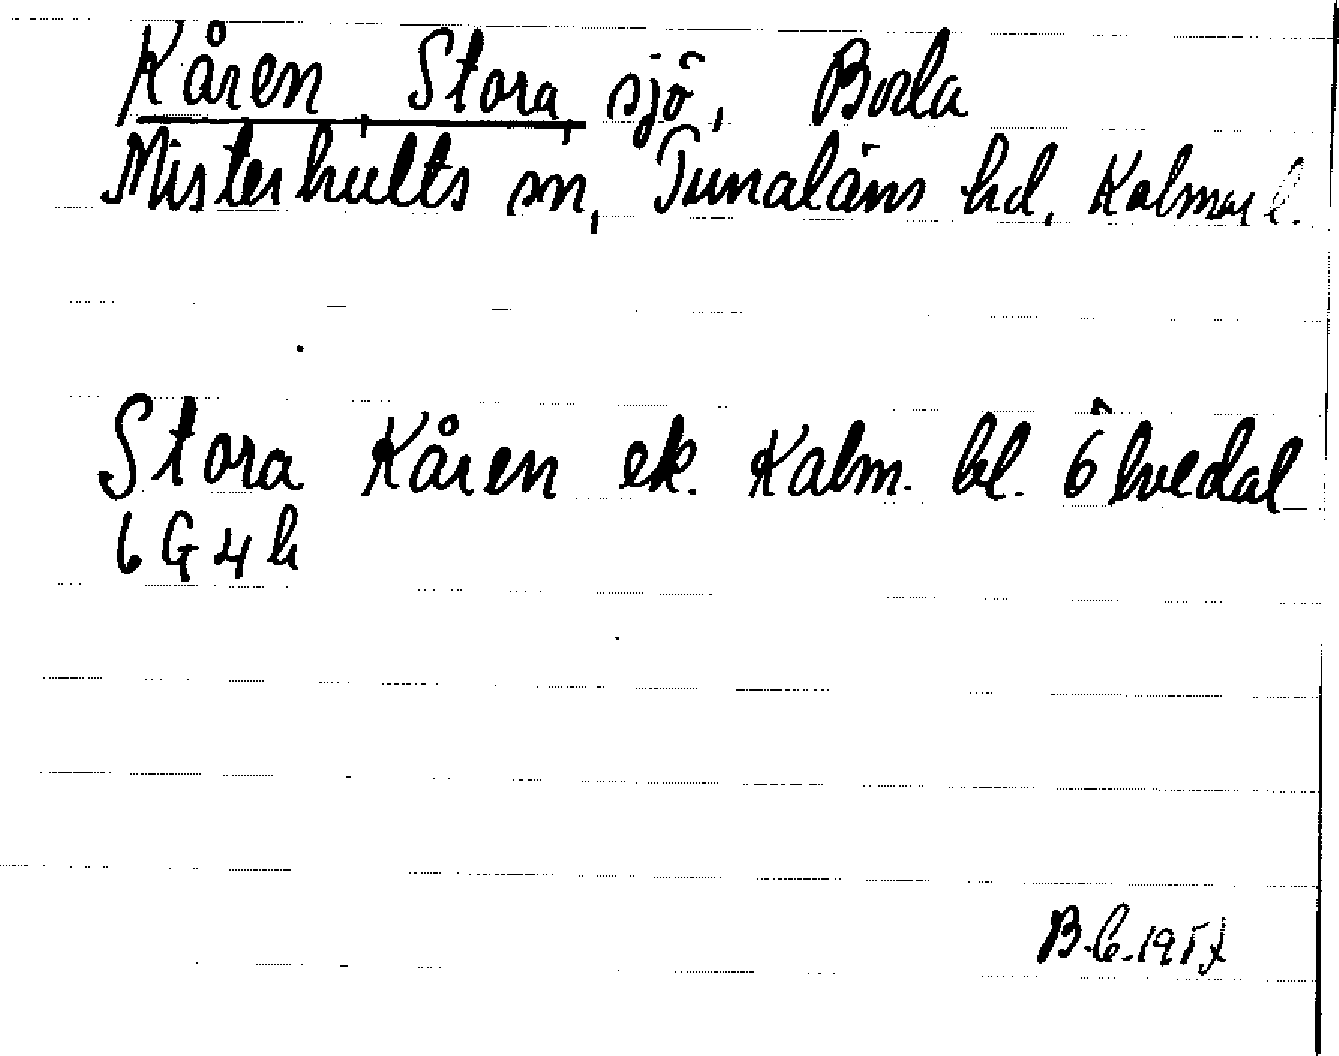 Kåren, Stora, sjö, Boda
Misterhults sn, Tunaläns hd, Kalmar l.
Stora Kåren ek. Kalm. bl. Ölvedal
6 G 4 h